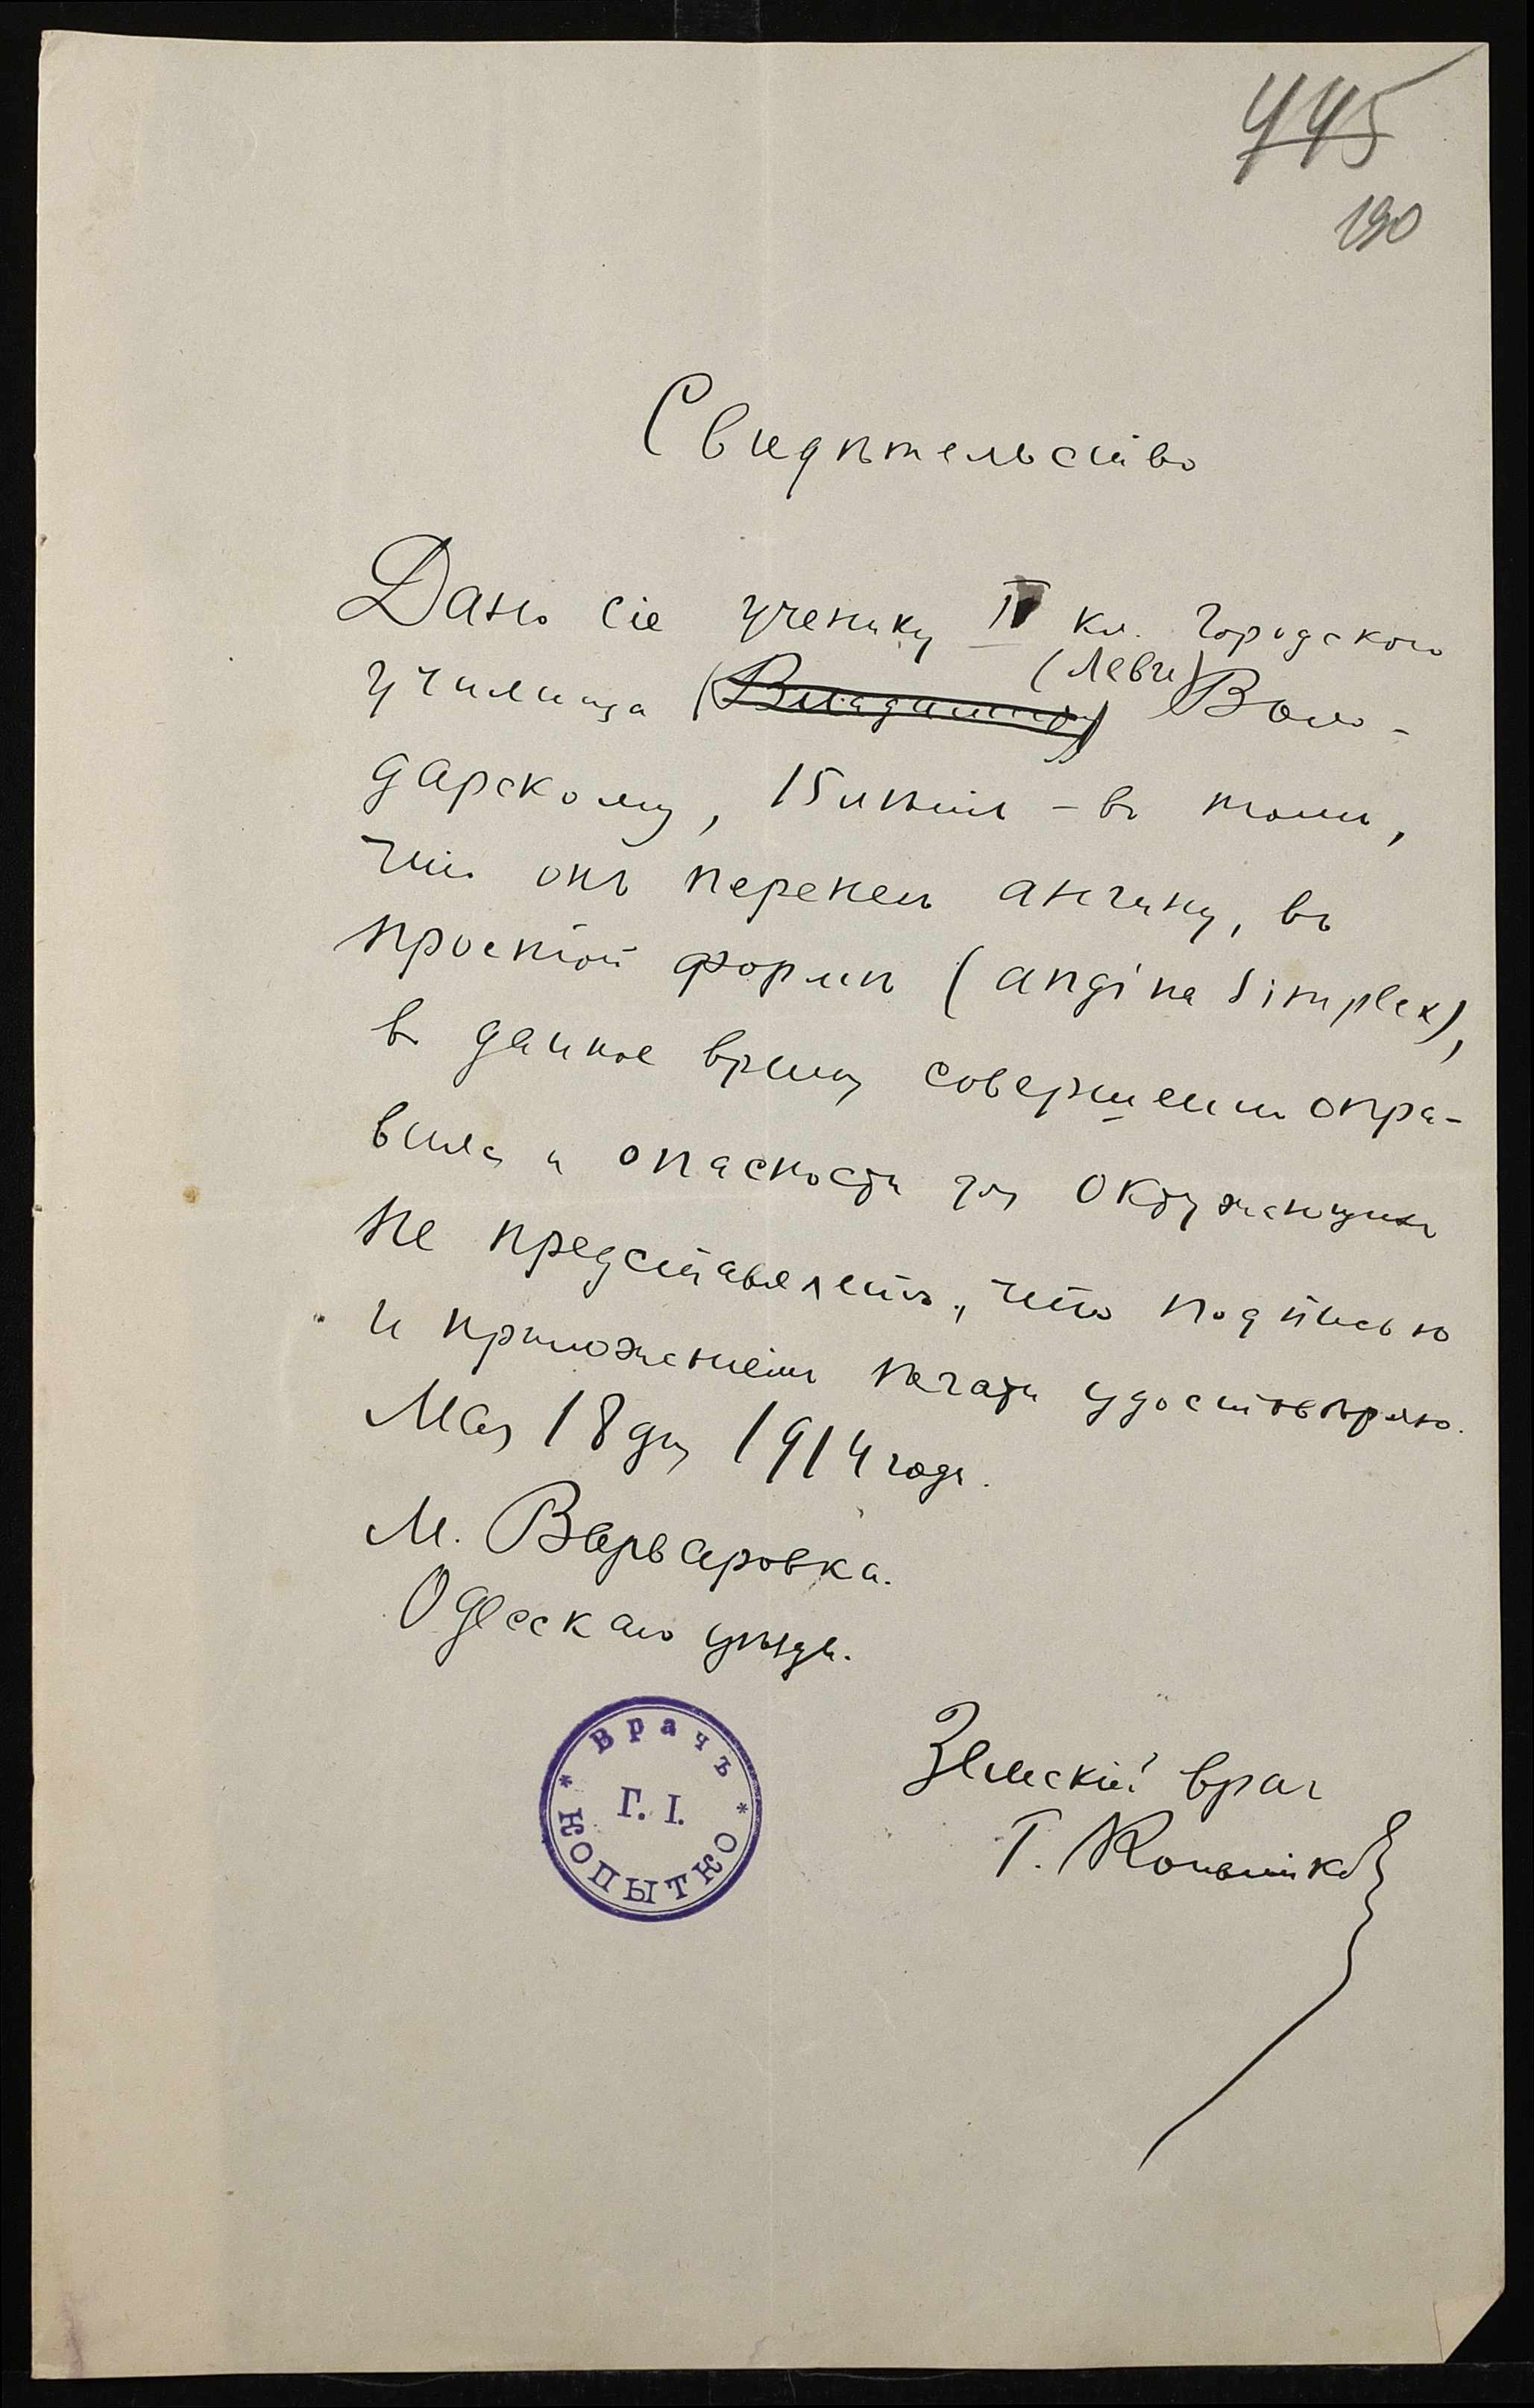 445
190
Свидѣтельство
Дано сіе ученику IV кл. городского
училища (Владимиру) (Леви) Воло-
дарскому, 15 лѣтъ – въ томъ,
что онъ перенесъ ангину, въ
простой формѣ (angina simplex),
въ данное время совершенно опра-
вился и опасности для окружающихъ
не представляетъ, что подписью
и приложеніемъ печати удостовѣряю.
Мая 18 дня 1914 года.
М. Варваровка.
Одесскаго уѣзда.
Земскій врач
Г. Копытко
* Врачъ *
Г. І.
КОПЫТКО